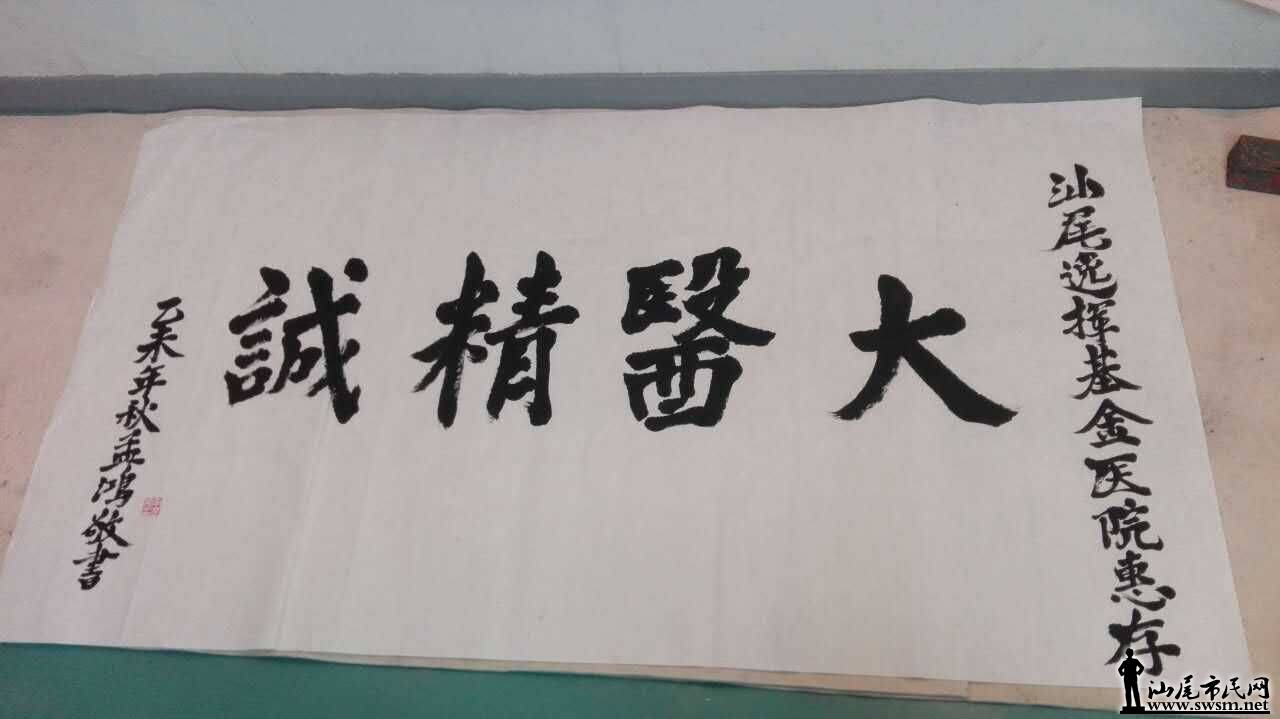 汕尾逸挥基金医院惠存
大醫精誠
乙未年秋孟鴻敬書
汕尾市民网
www.swsm.net